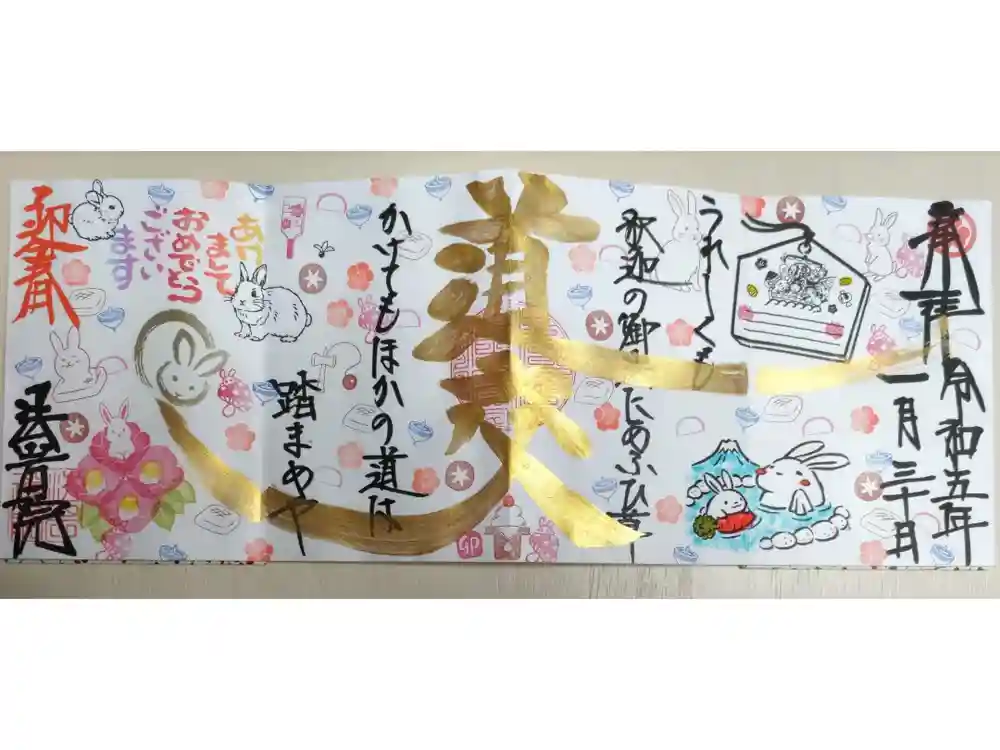 奉拝
令和五年
一月三十日
うれしくも
釈迦の御
あふひ草
かけてもほかの道は
踏まめや
あけ
まして
おめでとう
ござい
ます
迎春